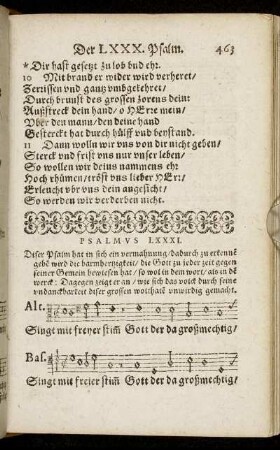 Der LXXX. Psalm. 463
* Dir hast gesetzt zu lob vnd ehr.
10 Mit brand er wider wird verheret/
Zerrissen vnd gantz vmbgekehret/
Durch brunst des grossen zorens dein:
Außstreck dein hand/ o HErre mein/
Vber den mann/ den deine hand
Gesterckt hat durch hülff vnd beystand.
11 Dann wolln wir vns von dir nicht geben/
Sterck vnd frist vns nur vnser leben/
So wollen wir deins nammens ehr
Hoch rhümen/ tröst vns lieber HErr/
Erleucht vber vns dein angesicht/
So werden wir verderben nicht.
PSALMVS LXXXI.
Diser Psalm hat in sich ein vermahnung/ dadurch zu erkennē
gebē wird die barmhertzigkeit/ die Gott zu jeder zeit gegen
seiner Gemein bewiesen hat/ so wol in dem wort/ als in dē
werck: Dagegen zeigt er an/ wie sich das volck durch seine
vndanckbarkeit diser grossen wolthatē vnwirdig gemacht.
Alt.
Singt mit freyer stim̄ Gott der da großmechtig/
Bas.
Singt mit freier stim̄ Gott der da großmechtig/